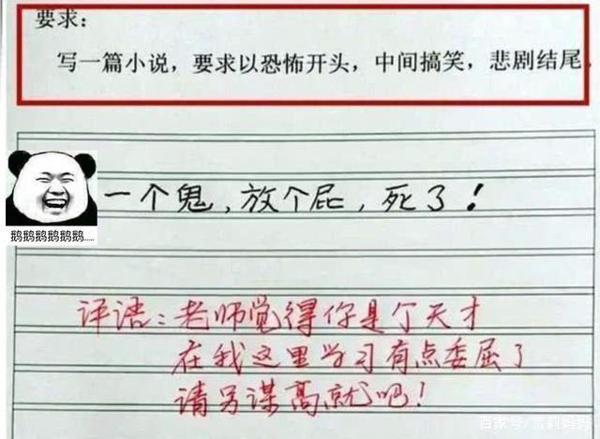 要求:
写一篇小说，要求以恐怖开头，中间搞笑，悲剧结尾。
一个鬼，放个屁，死了！
鹅鹅鹅鹅鹅鹅……
评语：老师觉得你是个天才
在我这里学习有点委屈了
请另谋高就吧！